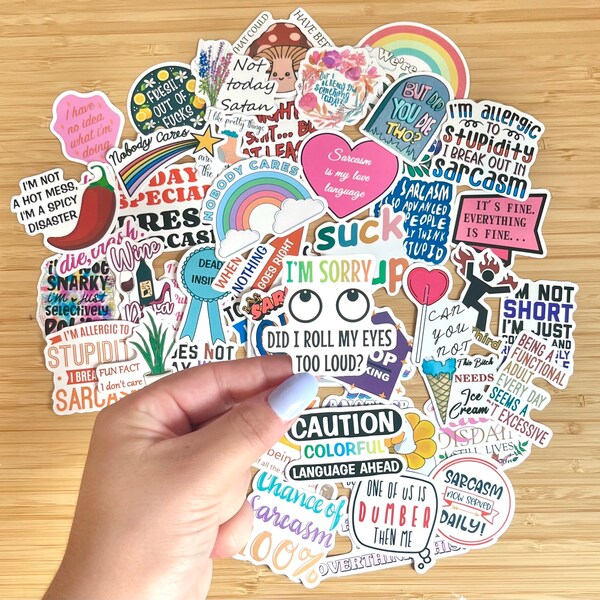 THAT COULD
HAVE BEEN
Not
today
Satan
We're
but I
already Did
Something
Today
BUT DID
YOU
DIE
TWO?
I have
no idea
what I'm
doing
FRESH
OUT OF
FUCKS
Nobody Cares
like pretty things
I'M allergic
TO
STUPIDITY
I BREAK OUT IN
SARCASM
I'M NOT
A HOT MESS,
I'M A SPICY
DISASTER
DAY
SPECIAL
NOBODY CARES
Sarcasm
is my love
language
SARCASM
SO ADVANCED
PEOPLE
STUPID
IT'S FINE.
EVERYTHING
IS FINE...
suck
WHEN
NOTHING
GOES RIGHT
DEAD
INSIDE
Wine
SNARKY
I'm just
selectively
I'M SORRY
DID I ROLL MY EYES
TOO LOUD?
CAN
YOU
NOT
I'M NOT
SHORT
I'M JUST
BEING A
FUNCTIONAL
ADULT
EVERY DAY
SEEMS A
BIT EXCESSIVE
I'M ALLERGIC TO
STUPIDITY
I BREAK
SARCASM
FUN FACT
I don't care
This Bitch
NEEDS
Ice
Cream
CAUTION
COLORFUL
LANGUAGE AHEAD
STILL LIVES
Chance of
Sarcasm
100%
ONE OF US IS
DUMBER
THEN ME
SARCASM
NOW SERVED
DAILY!